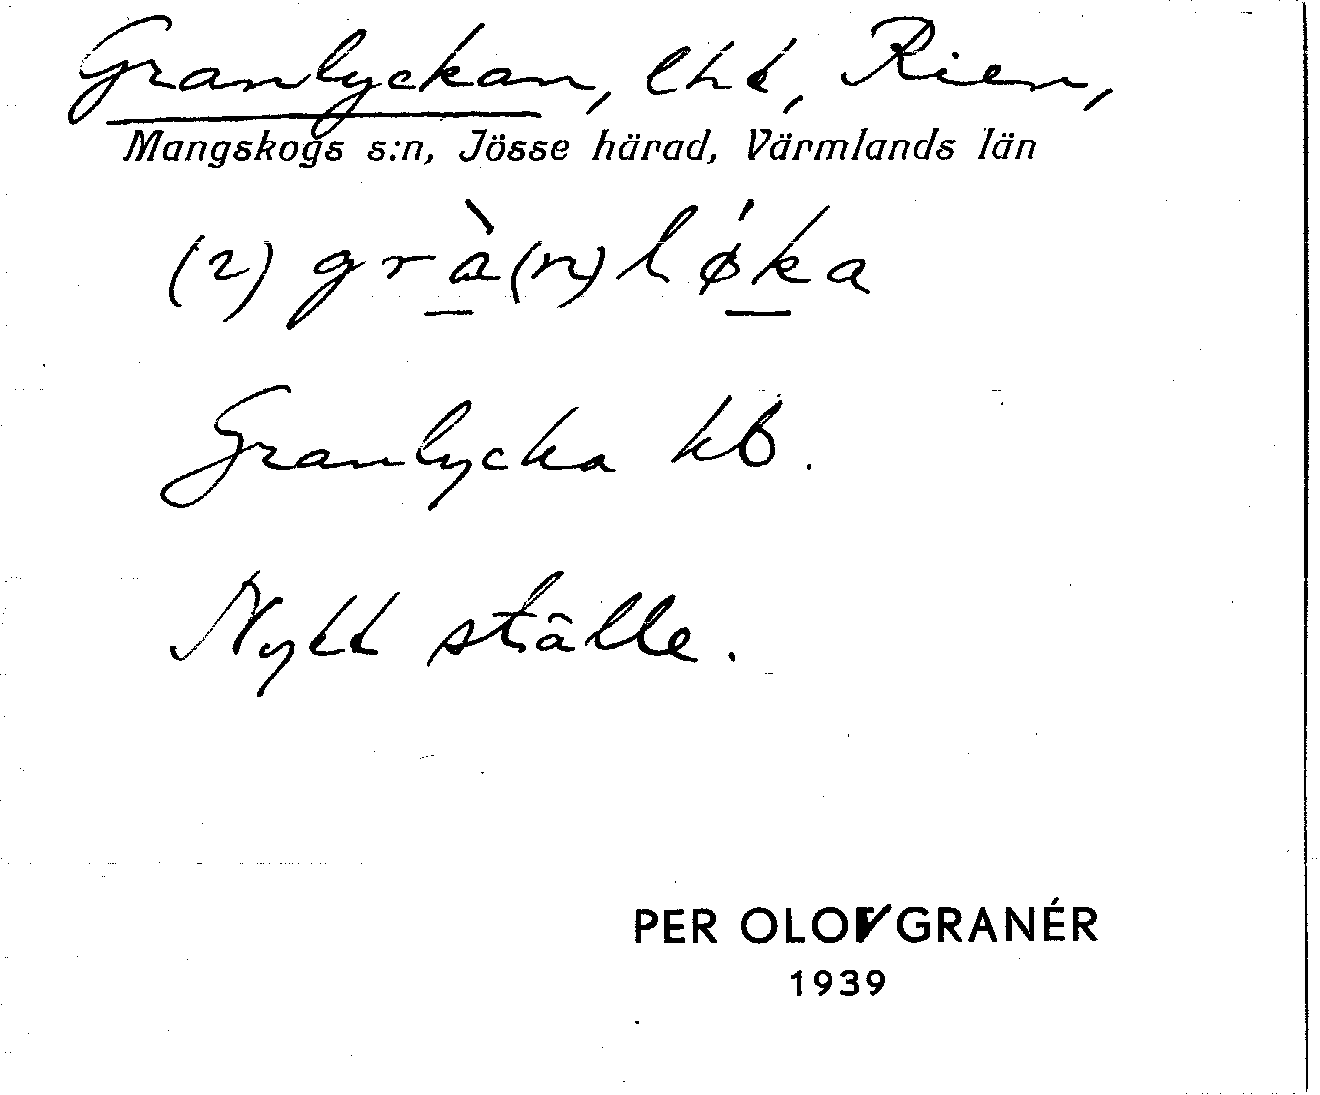 Granlyckan, lht, Rien,
Mangskogs s:n, Jösse härad, Värmlands län
(2) grà(n)løka
Granlycka kb.
Nytt ställe.
PER OLOV GRANÉR
1939